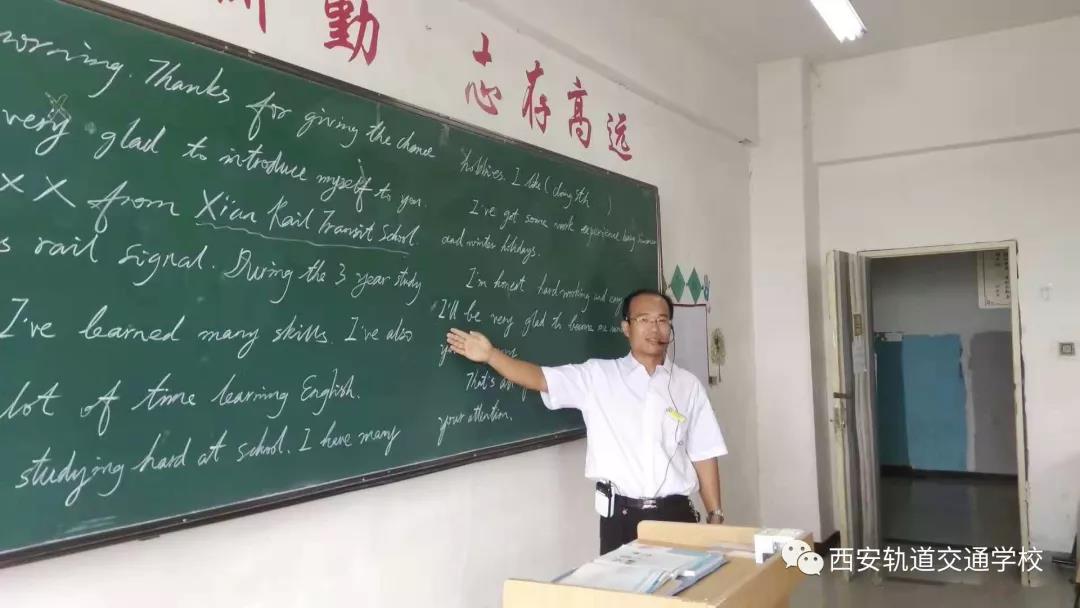 勤
志存高远
morning. Thanks for giving the chance
very glad to introduce myself to you.
XX from Xian Rail Transit School.
s rail signal. During the 3 year study
I've learned many skills. I've also
lot of time learning English.
studying hard at school. I have many
hobbies. I like (doing sth )
I've got some work experience
and winter holidays.
I'm honest hardworking and
I'll be very glad to become one
That's
your attention.
西安轨道交通学校